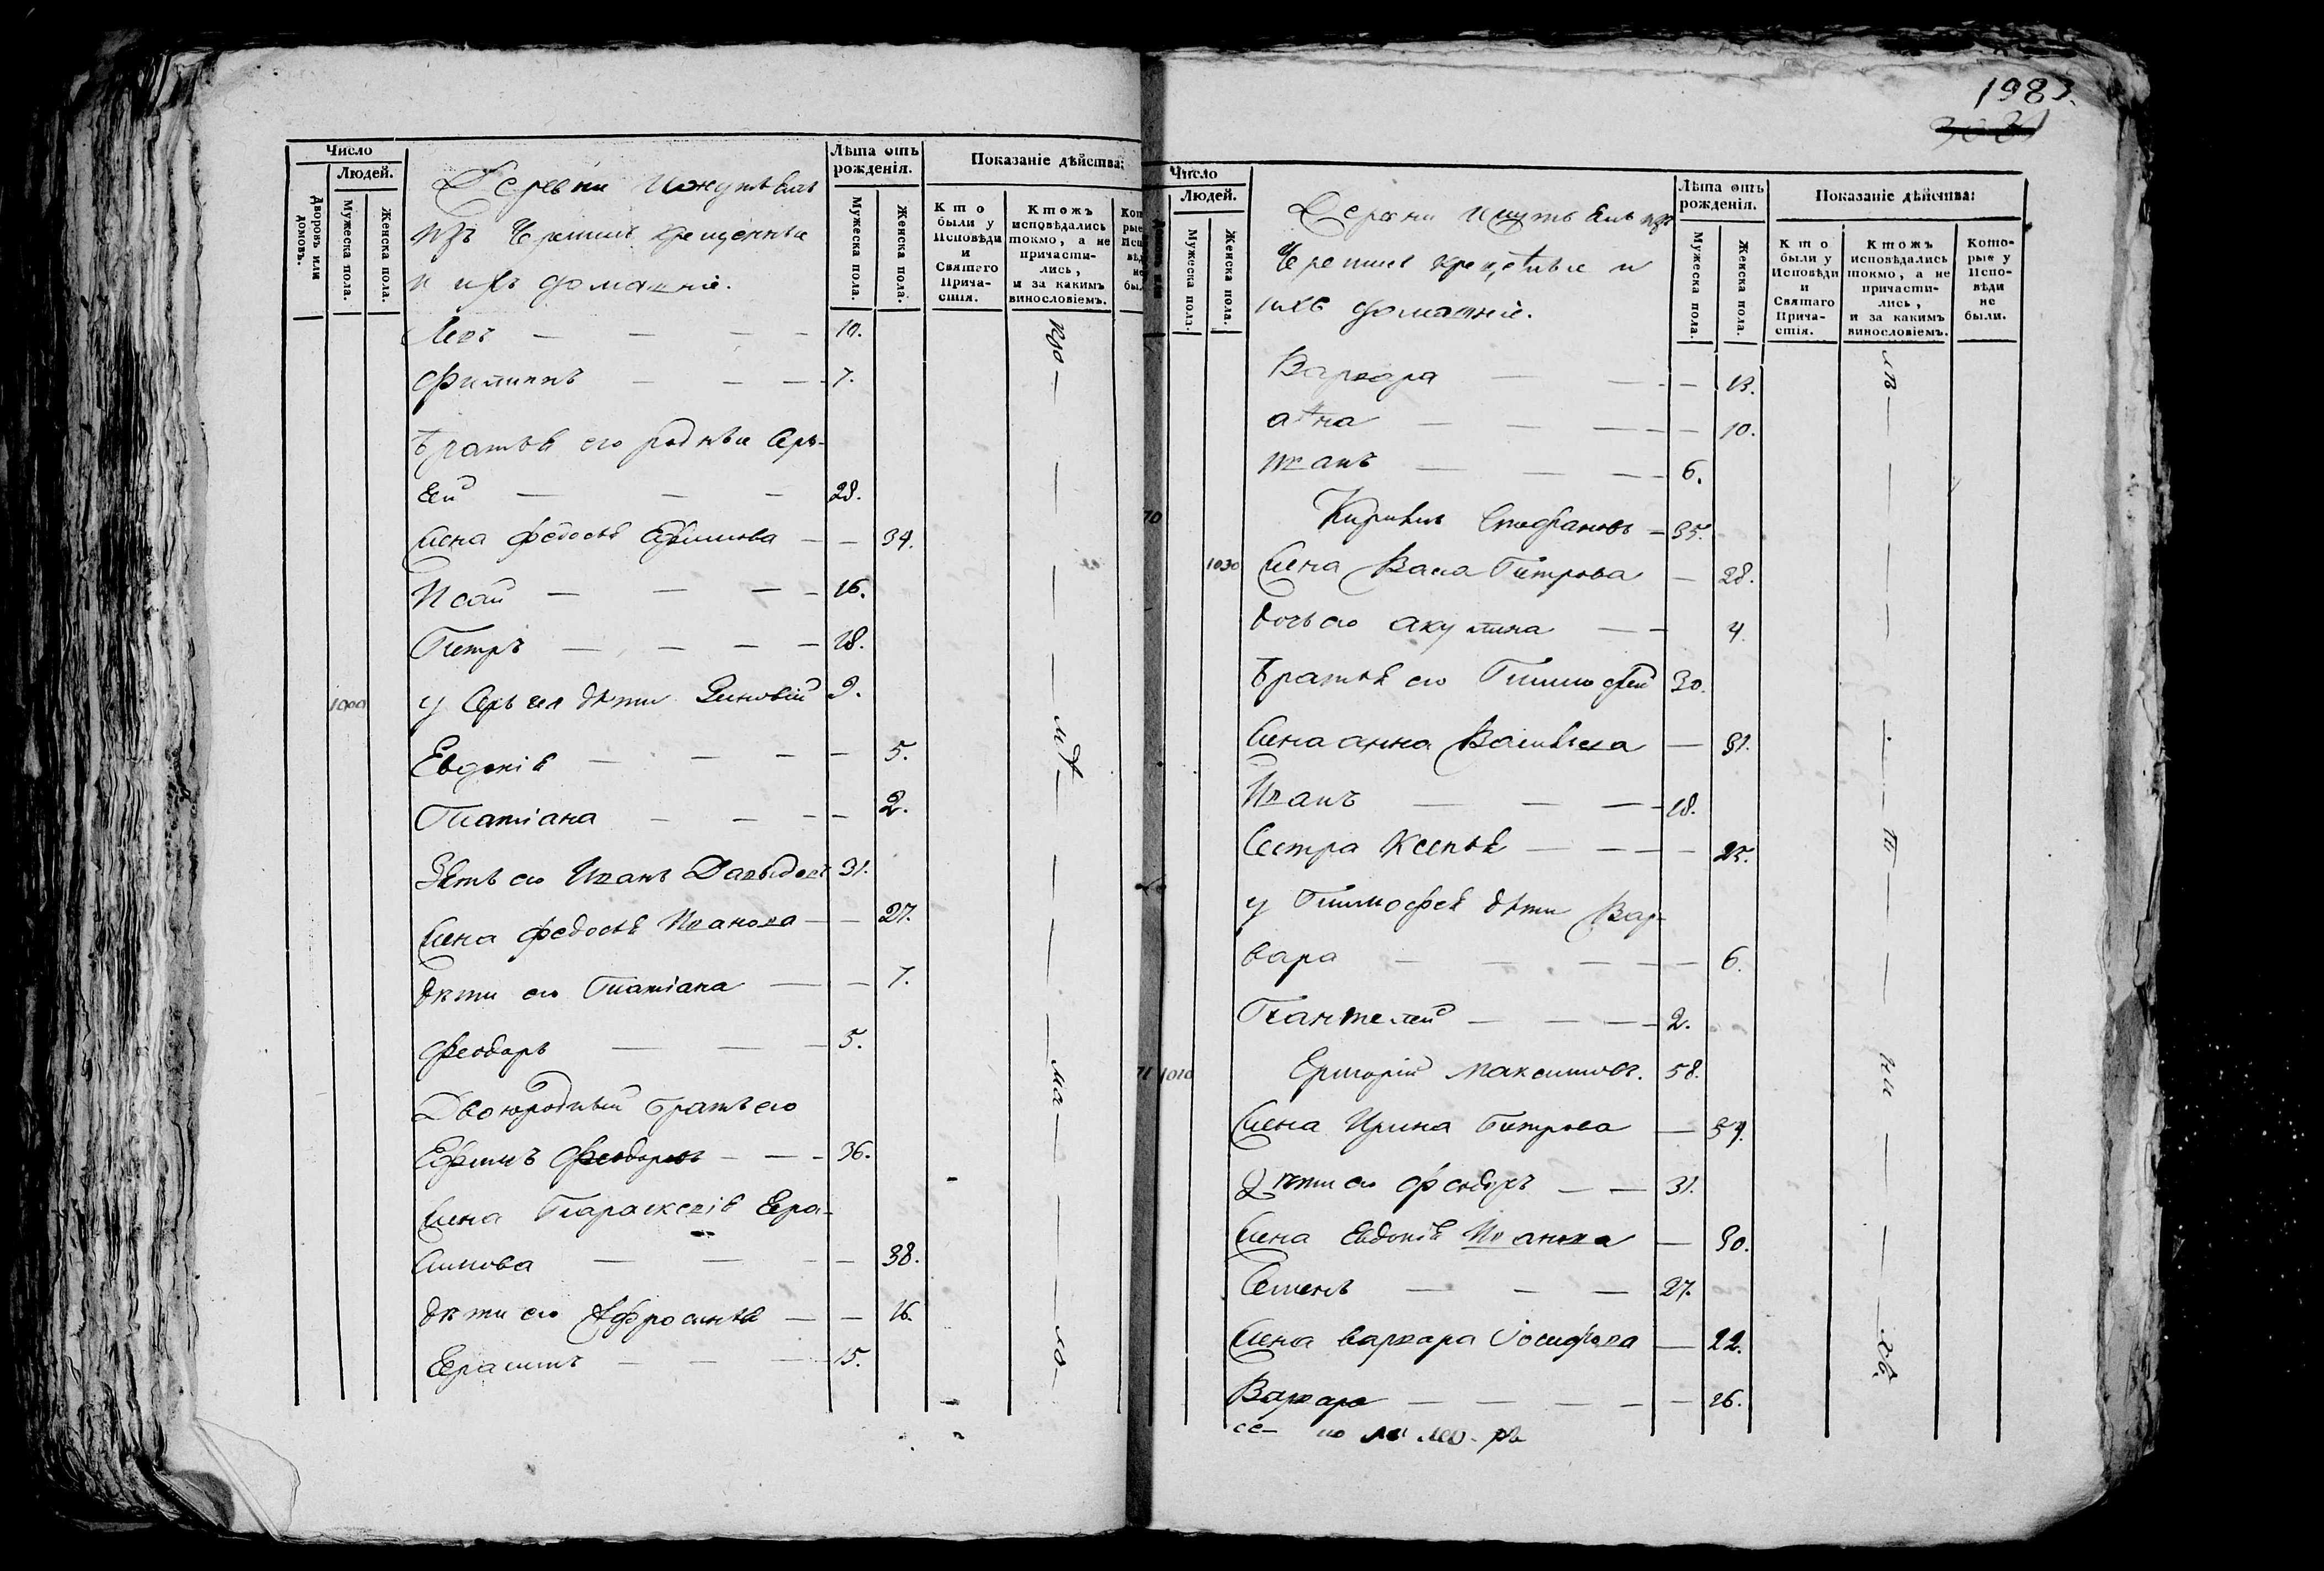 Число
Людей.
Дворовъ или домовъ.
Мужеска пола.
Женска пола.
Лѣта отъ рожденія.
Мужеска пола.
Женска пола.
Показаніе дѣйства:
Кто были у Исповѣди и Святаго Причастія.
Ктожъ исповѣдались токмо, а не причастились, и за какимъ винословіемъ.
Деревни
изъ Черемис крещенныя
и ихъ домашніе.
Левъ — — — — 10.
Филиппъ — — — 7.
Братья его родные Сер-
гей — — — 28.
Жена Федосья Ефимова — — 34.
Исай — — — 16.
Петръ — — — — 18.
1000 у Сергея дѣти Зиновій 9.
Евдокія — — — — 5.
Татіана — — — — 2.
Зять его Иванъ Давыдовъ 31.
Жена Федосья Иванова — — 27.
дѣти его Татіана — — 7.
Феодоръ — — — 5.
Двоюродный братъ его
Ефимъ Феодоровъ — — — 36.
Жена Параскевія Гера-
симова — — — — 38.
дѣти его Ефросинья — — 16.
Герасимъ — — — 15.
1983.
Число
Людей.
Мужеска пола.
Женска пола.
Лѣта отъ рожденія.
Мужеска пола.
Женска пола.
Показаніе дѣйства:
Кто были у Исповѣди и Святаго Причастія.
Ктожъ исповѣдались токмо, а не причастились, и за какимъ винословіемъ.
Которые у Исповѣди не были.
Деревни изъ
Черемис крещеные и
ихъ домашніе.
Варвара — — — 13.
Анна — — — — 10.
Иванъ — — — 6.
70 Кирилъ Стефановъ — 35.
1030 Жена Васса Петрова — 28.
дочь его Акулина — — 4.
Братья его Тимофей 30.
Жена Анна Васильева — 31.
Иванъ — — — 18.
Сестра Ксенья — — — — 25.
у Тимофея дѣти Вар-
вара — — — — — 6.
Пантелей — — — 2.
71 1010 Григорій Максимовъ. 58.
Жена Ирина Петрова — 54.
Дѣти его Феодоръ — — 31.
Жена Евдокія Иванова — 30.
Семенъ — — — 27.
Жена Варвара Іосифова — 22.
Варвара — — — — — 26.